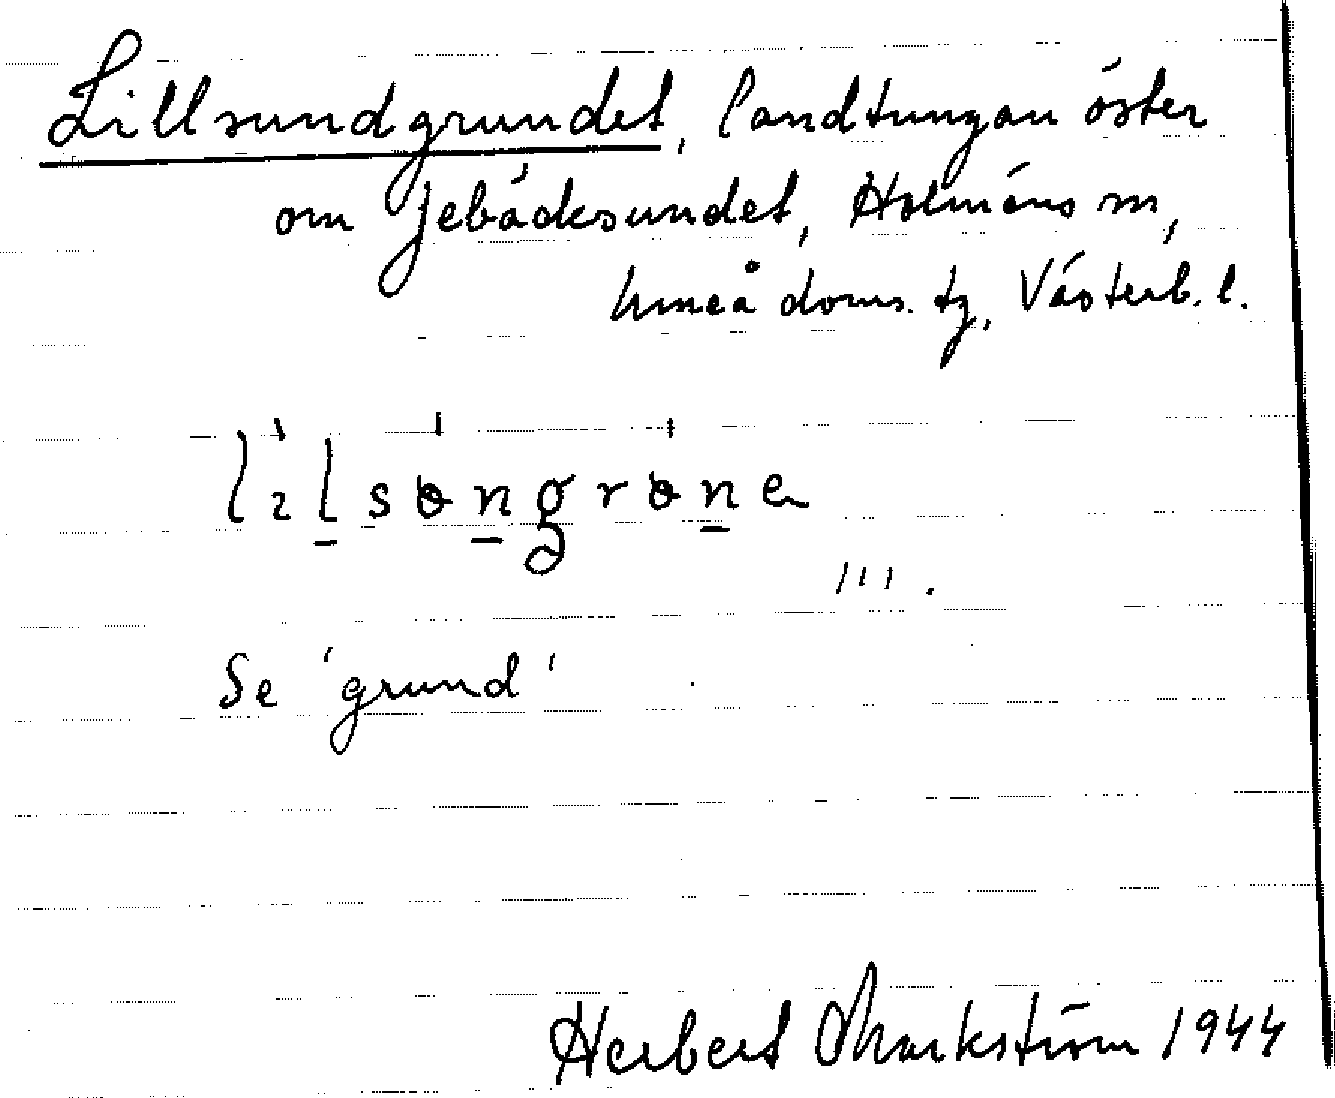 Lillsundgrundet, landtungan öster
om Jebäcksundet, Holmöns sn,
Umeå doms. tg, Västerb. l.
lılsɵngrɵne
Se 'grund'
Herbert Markström 1944